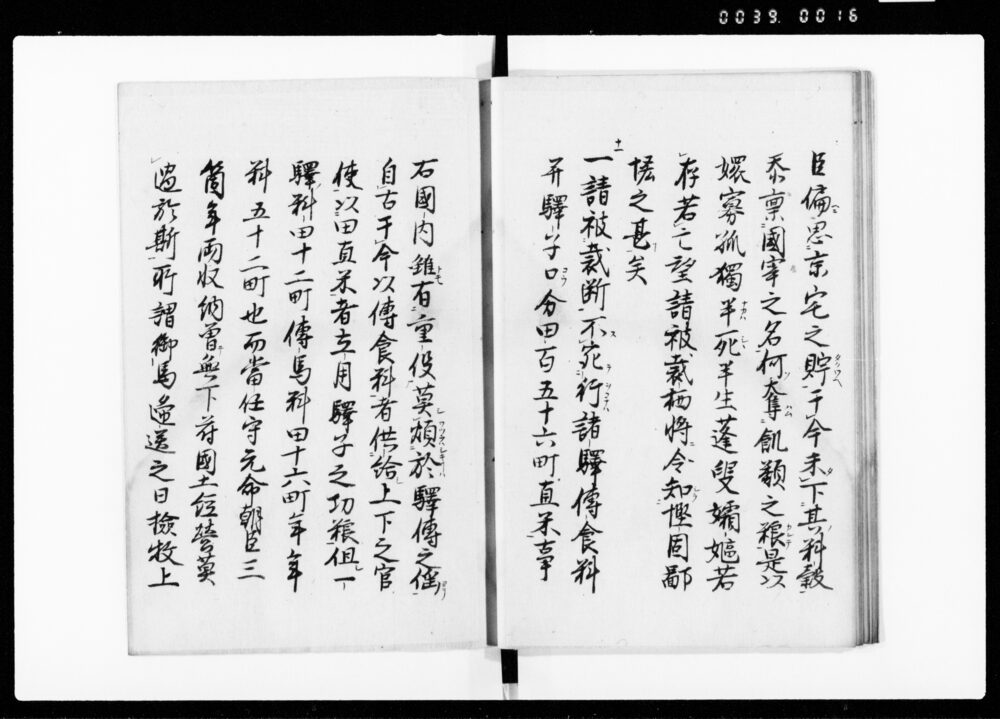 0039.0016
臣偏思京宅之貯于今未下其料穀
忝禀國宰之名何奪飢類之粮是以
嬛寡孤獨半死半生蓬嫂孀嫗若
存若亡望請被裁栖將令知慳固鄙
恡之甚矣
十一
一請被裁断不宛行諸驛傳食料
并驛子口分田百五十六町直米事
右國内雖有重役莫煩於驛傳之徭
自古于今以傳食料者供給上下之官
使以田直米者立用驛子之功粮但一
驛料田十二町傳馬料田十六町年年
料五十二町也而當任守元命朝臣三
箇年両収納曽無下符國土俗營莫
過於斯所謂御馬遞送之日撿牧上